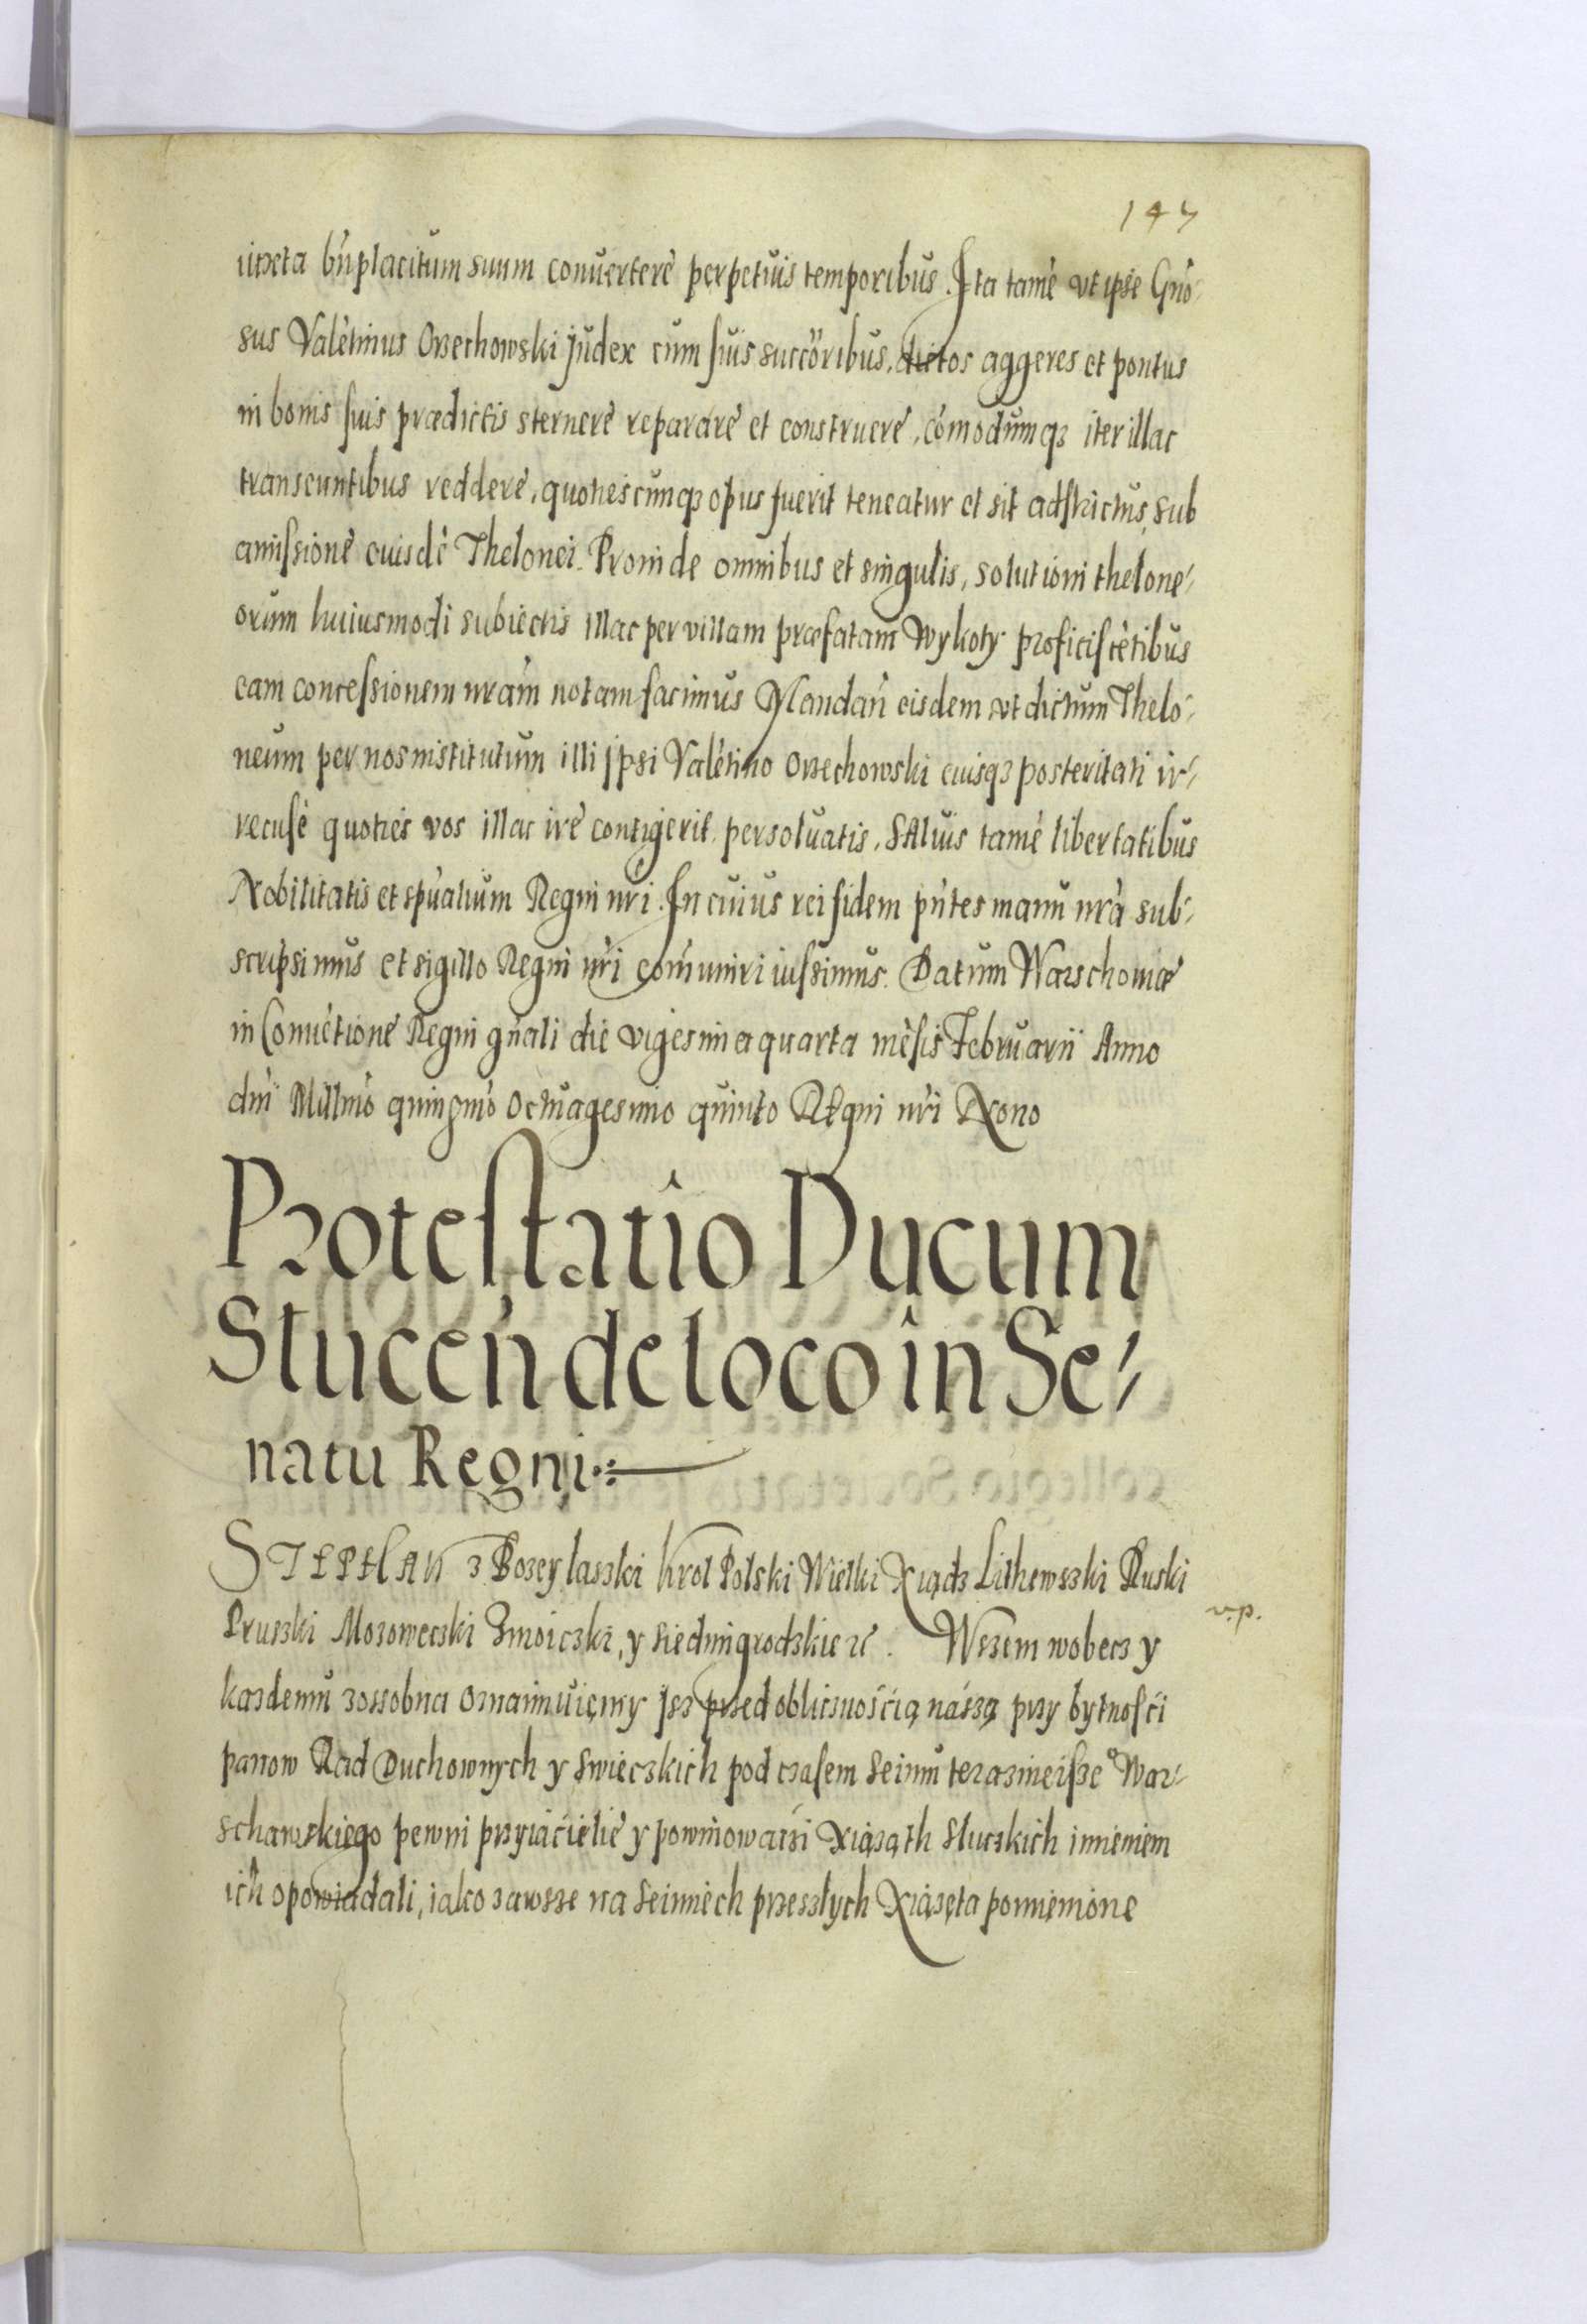 147
iuxta bn̄placitum suum conuertere perpetuis temporibus. Ita tamē vt ipse Gn̄o-
sus Valētinus Orzechowski Judex cum suis succōribus, dictos aggeres et pontus
in bonis suis prædictis sternere reparare et construere, cōmodumqz iter illac
transeuntibus reddere, quotiescunqz opus fuerit teneatur et sit adstrictus, sub
amissione euisdē Thelonei. Proinde omnibus et singulis, solutioni thelone-
orum huiusmodi subiectis illac per villam præfatam Wykoty proficiscētibus
eam concessionem nr̄am notam facimus Mandan̄ eisdem vt dictum Thelo-
neum per nos institutum illi ipsi Valētino Orzechowski euisqz posteritati ir-
recuse quoties vos illac ire contigerit persoluatis. Saluis tamē libertatibus
Nobilitatis et spūalium Regni nr̄i. In cuius rei fidem pn̄tes manu nr̄a sub-
scripsimus et sigillo Regni nr̄i com̄uniri iussimus. Datum Warschouiæ
in Conuētione Regni gn̄ali die vigesima quarta mēsis Februarii Anno
dn̄i Millmo quingmo Octuagesimo quinto Regni nr̄i Nono
Protestatio Ducum
Slucen̄ de loco in Se-
natu Regni
STEPHAN z Bozey laszki Krol Polski Wielki Xiądz Lithewszki Ruski
Pruszki Mozoweczki Zmoiczki, y Siedmigrodzkie zc̄. Wszem wobecz y
kazdemu zossobna oznaimuięmy Jsz przed oblicznośćią nászą przy bytnosći
panow Rad Duchownych y swieczkich pod czasem Seimu terazmeisze° War-
schawskiego pewni przyiaćielie y powinowaczi Xiąząth Sluczkich imieniem
ich opowiadali, iako zawsze na Seimiech przeszlych Xiązęta pomienione